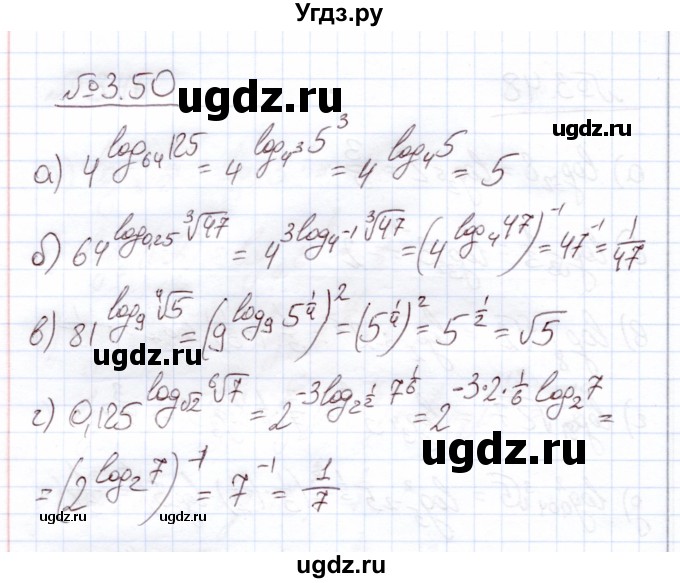 Угдз.ру
№3.50
ugdz.ru
а) 4^{log_{64}125} = 4^{log_{4^3}5^3} = 4^{log_4 5} = 5
б) 64^{log_{0,25}∛47} = 4^{3log_{4^{-1}}∛47} = (4^{log_4 47})^{-1} = 47^{-1} = 1/47
ugdz.ru
в) 81^{log_9 ∜5} = (9^{log_9 5^{1/4}})^2 = (5^{1/4})^2 = 5^{1/2} = √5
ugdz.ru
г) 0,125^{log_{√2} ⁶√7} = 2^{-3log_{2^{1/2}}7^{1/6}} = 2^{-3·2·1/6 log_2 7} =
ugdz.ru
= (2^{log_2 7})^{-1} = 7^{-1} = 1/7
ugdz.ru
ugdz.ru
ugdz.ru